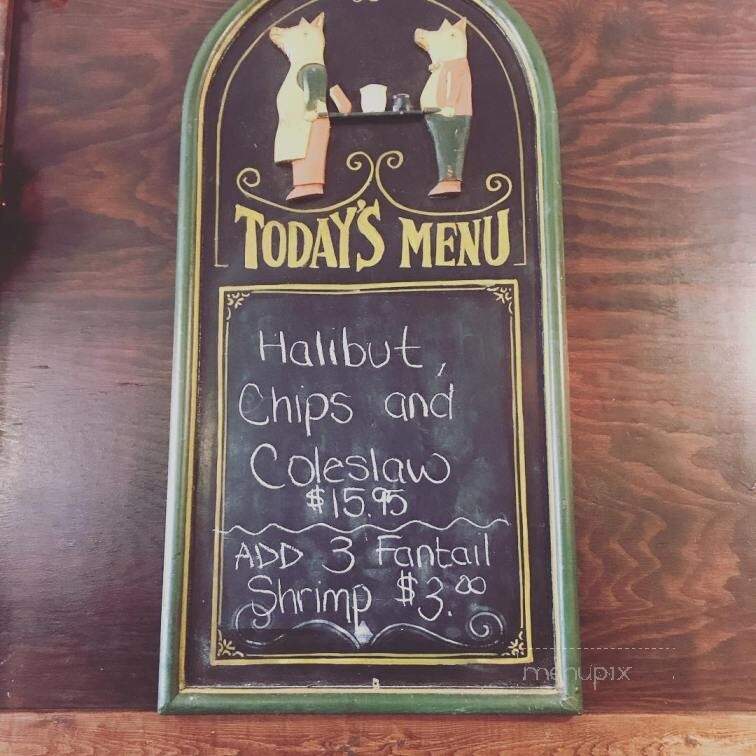 TODAY'S MENU
Halibut,
Chips and
Coleslaw
$15.95
ADD 3 Fantail
Shrimp $3.00
menupix